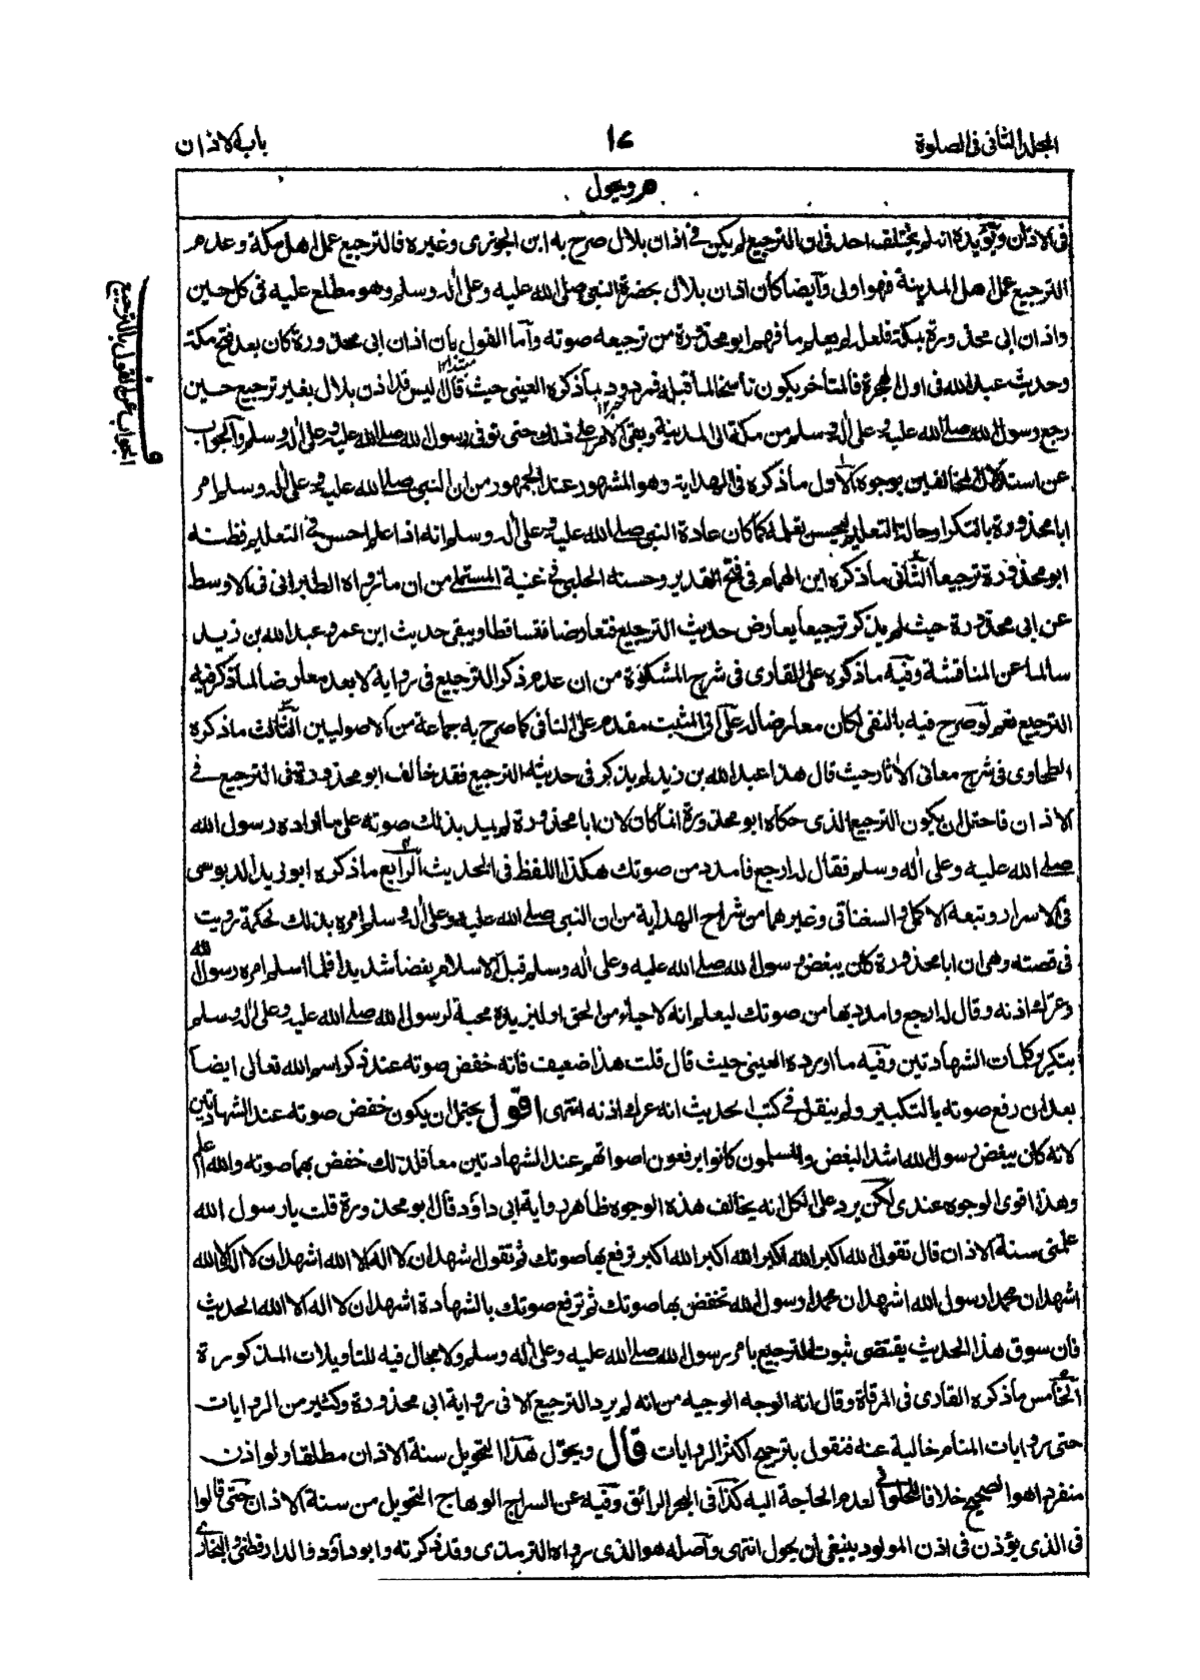 المجلد الثاني في الصلوة
١٧
باب الاذان
م ويحول
في الاذان ويؤيده انه لم يختلف احد في ان الترجيع لم يكن في اذان بلال صرح به ابن الجوزي وغيره فالترجيع عمل اهل مكة وعدم
الترجيع عمل اهل المدينة فهو اولى وايضا كان اذان بلال بحضرة النبي صلى الله عليه وعلى اله وسلم وهو مطلع عليه في كل حين
واذان ابي محذورة بمكة فلعله لم يعلم بما فهم ابو محذورة من ترجيعه صوته واما القول بان اذان ابي محذورة كان بعد فتح مكة
وحديث عبد الله في اول الهجرة فالمتاخر يكون ناسخا لما قبله فمردود بما ذكره العيني حيث قال اليس قد اذن بلال بغير ترجيع حين
رجع رسول الله صلى الله عليه وعلى اله وسلم من مكة الى المدينة وبقي الامر على ذلك حتى توفي رسول الله صلى الله عليه وعلى اله وسلم والجواب
عن استدلال المخالفين بوجوه الاول ما ذكره في الهداية وهو المشهور عند الجمهور من ان النبي صلى الله عليه وعلى اله وسلم امر
ابا محذورة بالتكرار حالة التعليم ليحسن تعلمه كما كان عادة النبي صلى الله عليه وعلى اله وسلم انه اذا علم احسن في التعليم فظنه
ابو محذورة ترجيعا الثاني ما ذكره ابن الهمام في فتح القدير وحسنه الحلبي في غنية المستملي من ان ما رواه الطبراني في الاوسط
عن ابي محذورة حيث لم يذكر ترجيعا يعارض حديث الترجيع فتعارضا فتساقطا ويبقى حديث ابن عمر وعبد الله بن زيد
سالما عن المناقشة وفيه ما ذكره علي القاري في شرح المشكوة من ان عدم ذكر الترجيع في رواية لا يعد معارضا لما ذكر فيه
الترجيع نعم لو صرح فيه بالنفي لكان معارضا له على ان المثبت مقدم على النافي كما صرح به جماعة من الاصوليين الثالث ما ذكره
الطحاوي في شرح معاني الاثار حيث قال هذا عبد الله بن زيد لم يذكر في حديثه الترجيع فقد خالف ابو محذورة في الترجيع في
الاذان فاحتمل ان يكون الترجيع الذي حكاه ابو محذورة انما كان لان ابا محذورة لم يمد بذلك صوته على ما اراده رسول الله
صلى الله عليه وعلى اله وسلم فقال له ارجع فامدد من صوتك هكذا اللفظ في الحديث الرابع ما ذكره ابو زيد الدبوسي
في الاسرار وتبعه الاكمل والسغناقي وغيرهما من شراح الهداية من ان النبي صلى الله عليه وعلى اله وسلم امره بذلك لحكمة رويت
في قصته وهي ان ابا محذورة كان يبغض رسول الله صلى الله عليه وعلى اله وسلم قبل الاسلام بغضا شديدا فلما اسلم امره رسول الله
وعرك اذنه وقال له ارجع وامدد بها من صوتك ليعلم انه لا حياء من الحق او ليزيده محبة لرسول الله صلى الله عليه وعلى اله وسلم
بتكرير كلمات الشهادتين وفيه ما اورده العيني حيث قال قلت هذا ضعيف فانه خفض صوته عند ذكر اسم الله تعالى ايضا
بعد ان رفع صوته بالتكبير ولم ينقل في كتب الحديث انه عرك اذنه انتهى اقول يحتمل ان يكون خفض صوته عند الشهادتين
لانه كان يبغض رسول الله اشد البغض والمسلمون كانوا يرفعون اصواتهم عند الشهادتين معا فلذلك خفض بهما صوته والله اعلم
وهذا اقوى الوجوه عندي لكن يرد على الكل انه يخالف هذه الوجوه ظاهر رواية ابي داؤد قال ابو محذورة قلت يا رسول الله
علمني سنة الاذان قال تقول الله اكبر الله اكبر الله اكبر الله اكبر ترفع بها صوتك ثم تقول اشهد ان لا اله الا الله اشهد ان لا اله الا الله
اشهد ان محمدا رسول الله اشهد ان محمدا رسول الله تخفض بها صوتك ثم ترفع صوتك بالشهادة اشهد ان لا اله الا الله الحديث
فان سوق هذا الحديث يقتضي ثبوت الترجيع بامر رسول الله صلى الله عليه وعلى اله وسلم ولا مجال فيه للتاويلات المذكورة
الخامس ما ذكره القاري في المرقاة وقال انه الوجه الوجيه من انه لم يرد الترجيع الا في رواية ابي محذورة وكثير من الروايات
حتى روايات المنام خالية عنه فنقول بترجيح اكثر الروايات قال ويحول هذا التحويل سنة الاذان مطلقا ولو اذن
منفردا هو الصحيح خلافا للحلواني لعدم الحاجة اليه كذا في البحر الرائق وفيه عن السراج الوهاج التحويل من سنة الاذان حتى قالوا
في الذي يؤذن في اذن المولود ينبغي ان يحول انتهى واصله هو الذي رواه الترمذي وقد ذكرته وابو داؤد والدارقطني والبخاري
الجواب عن القول بالترجيع